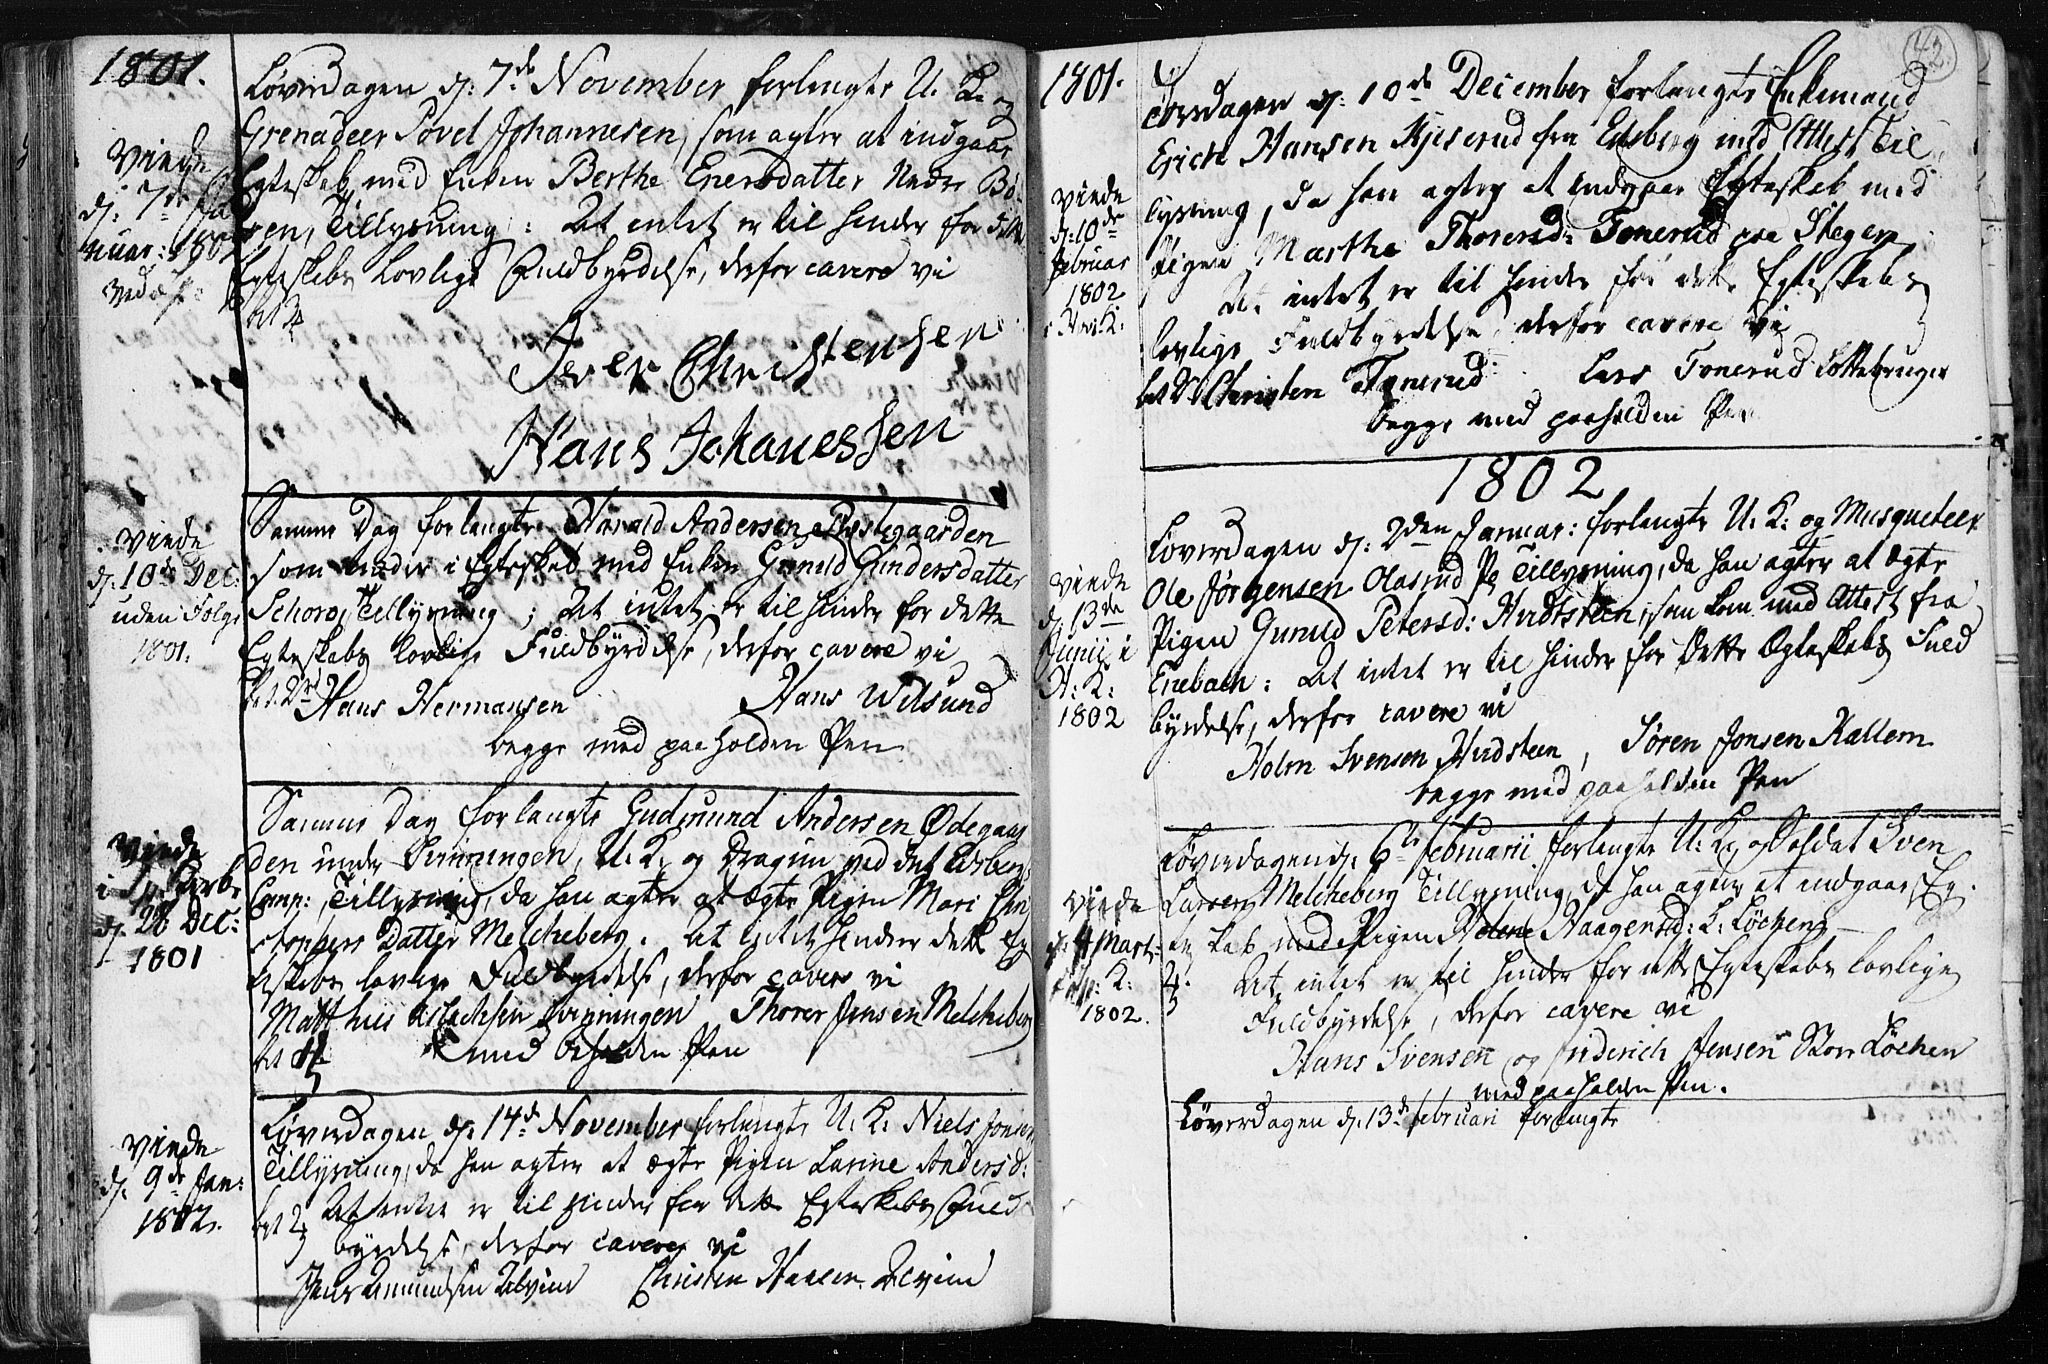 1801.
Løverdagen d: 7de November forlangte U. K. og
Grenadeer Povel Johannesen, som agter at indgaae
Egteskab med Enken Berthe Enersdatter Nedre Bø-
en, Tillysning: At intet er til hinder for dette
Egteskabs lovlige Fuldbyrdelse, derfor cavere vi
Viede
d: 7de Ja
nuar: 180
Iver Christensen
Hans Johanessen
Samme Dag forlangte Harald Andersen Præstegaarden
som træder i Egteskab med Enken Gunild Gundersdatter
Schoro, Tillysning; At intet er til hinder for dette
Egteskabs lovlige Fuldbyrdelse, derfor cavere vi
Hans Hermansen Hans Wilsund
begge med paaholden Pen
Viede
d: 10de Dec:
uden Følge
1801.
Samme Dag forlangte Gudmund Andersen Ødegaar
den under Tvinningen, U. K. og Dragun ved det Edsberg
Comp:, Tillysning, da han agter at ægte Pigen Mari Chri
stophers Datter Melcheberg. At intet hindrer dette Eg
teskabs lovlige Fuldbyrdelse, derfor cavere vi
Matthis Aslachsen Tvinningen Thorer Jensen Melcheberg
med paaholden Pen
Viede
d: 28 Dec:
1801
Løverdagen d: 14de November forlangte U. K. Niels Jonsen
Tillysning, da han agter at ægte Pigen Larine Andersd:
bet 2 At intet er til hinder for dette Egteskabs Fuld
byrdelse, derfor cavere vi
Jens Amundsen Ulvim Christen Hansen Ulvim
Viede
d: 9de Jan:
1802.
42.
1801.
Torsdagen d: 10de December forlangte Enkemand
Erich Hansen Kjeserud fra Edsberg med Attest Til
lysning, da han agter at indgaae Egteskab med
Pigen Marthe Thorersd: Tonerud paa Stegen
At intet er til hinder for dette Egteskabs
lovlige Fuldbyrdelse derfor cavere vi
Christen Tonerud Lars Tonerud
begge med paaholden Pen
Viede
d: 10de
Februar
1802
i Hov: K:
1802
Løverdagen d: 2den Januar: forlangte U. K: og Musqueteer
Ole Jørgensen Olasrud Tillysning, da han agter at ægte
Pigen Gunild Petersd: Hvidsteen, som kom med Attest fra
Enebach: At intet er til hinder for dette Egteskabs Fuld
byrdelse, derfor cavere vi
Holm Svensen Hvidsteen, Søren Jonsen Kallem
begge med paaholden Pen
Viede
d: 13de
Junii i
H: K:
1802
Løverdagen d: 6te Februarii forlangte U. K. og Soldat Sven
Larsen Melcheberg Tillysning, da han agter at indgaae Eg-
te skab med Pigen Helene Haagensd: L: Løchen
At intet er til hinder for dette Egteskabs lovlige
Fuldbyrdelse, derfor cavere vi
Hans Svensen og Friderich Jensen Stor Løchen
med paaholden Pen.
Viede
d: 4 Marti:
K:
1802.
Løverdagen d: 13de Februari forlangte